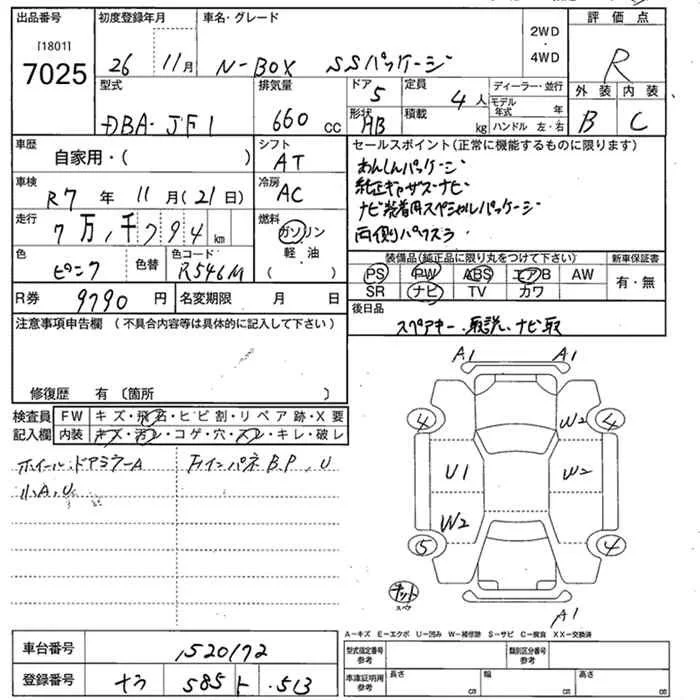 出品番号 初度登録年月 車名・グレード 2WD・4WD 評価点
[1801]
7025 26 11月 N-BOX SSパッケージ R
型式 排気量 ドア 5 定員 4人 ディーラー・並行 外装 内装
DBA-JF1 660cc 形状 HB 積載 kg モデル年式 年 ハンドル 左・右 B C
車歴 シフト セールスポイント(正常に機能するものに限ります)
自家用・( ) AT あんしんパッケージ
車検 冷房 純正ギャザズナビ
R7年 11月(21日) AC ナビ装着用スペシャルパッケージ
走行 燃料 両側パワスラ
7万,千794km ガソリン
軽・油
( )
色 色替 色コード 装備品(純正品に限り丸をつけて下さい) 新車保証書
ピンク R546M PS PW ABS エアB AW 有・無
SR ナビ TV カワ
R券 9790円 名変期限 月 日
後日品
スペアキー、取説、ナビ取
注意事項申告欄(不具合内容等は具体的に記入して下さい)
修復歴 有(箇所 )
検査員 FW キズ・飛石・ヒビ割・リペア跡・X要
記入欄 内装 キズ・汚レ・コゲ・穴・スレ・キレ・破レ
ホイール・ドアミラーA インパネB.P、U
小A,U
A1 A1
4 W2 4
U1 W2
W2
5 4
キット
スペア
A1
A-キズ E-エクボ U-凹み W-補修跡 S-サビ C-腐食 XX-交換済
車台番号 1520172
型式指定番号 参考 類別区分番号 参考
登録番号 ナラ 585 ト ・513
車庫証明用 参考 長さ cm 幅 cm 高さ cm